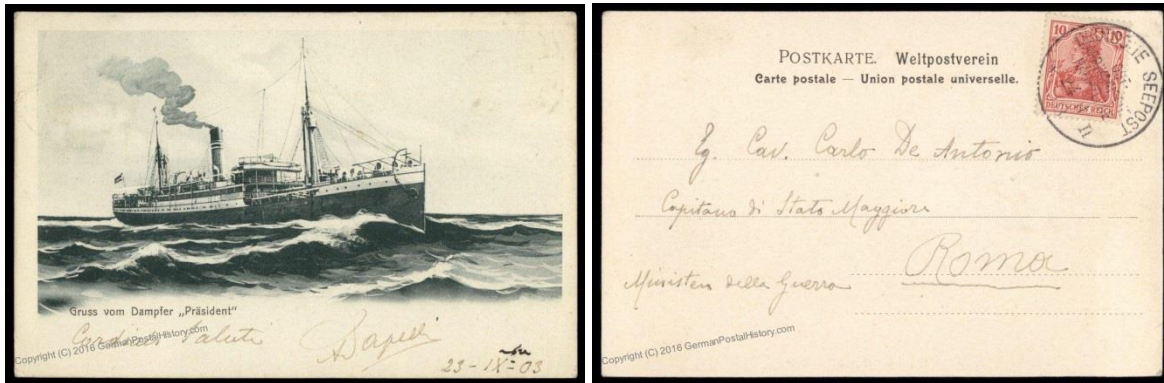 Gruss vom Dampfer „Präsident"
Cordiali Saluti
23-IX-03
Copyright (C) 2016 GermanPostalHistory.com
POSTKARTE. Weltpostverein
Carte postale — Union postale universelle.
10 10
DEUTSCHES REICH
LINIE SEEPOST
Eg. Cav. Carlo De Antonio
Capitano di Stato Maggiore
Roma
Ministero della Guerra
Copyright (C) 2016 GermanPostalHistory.com